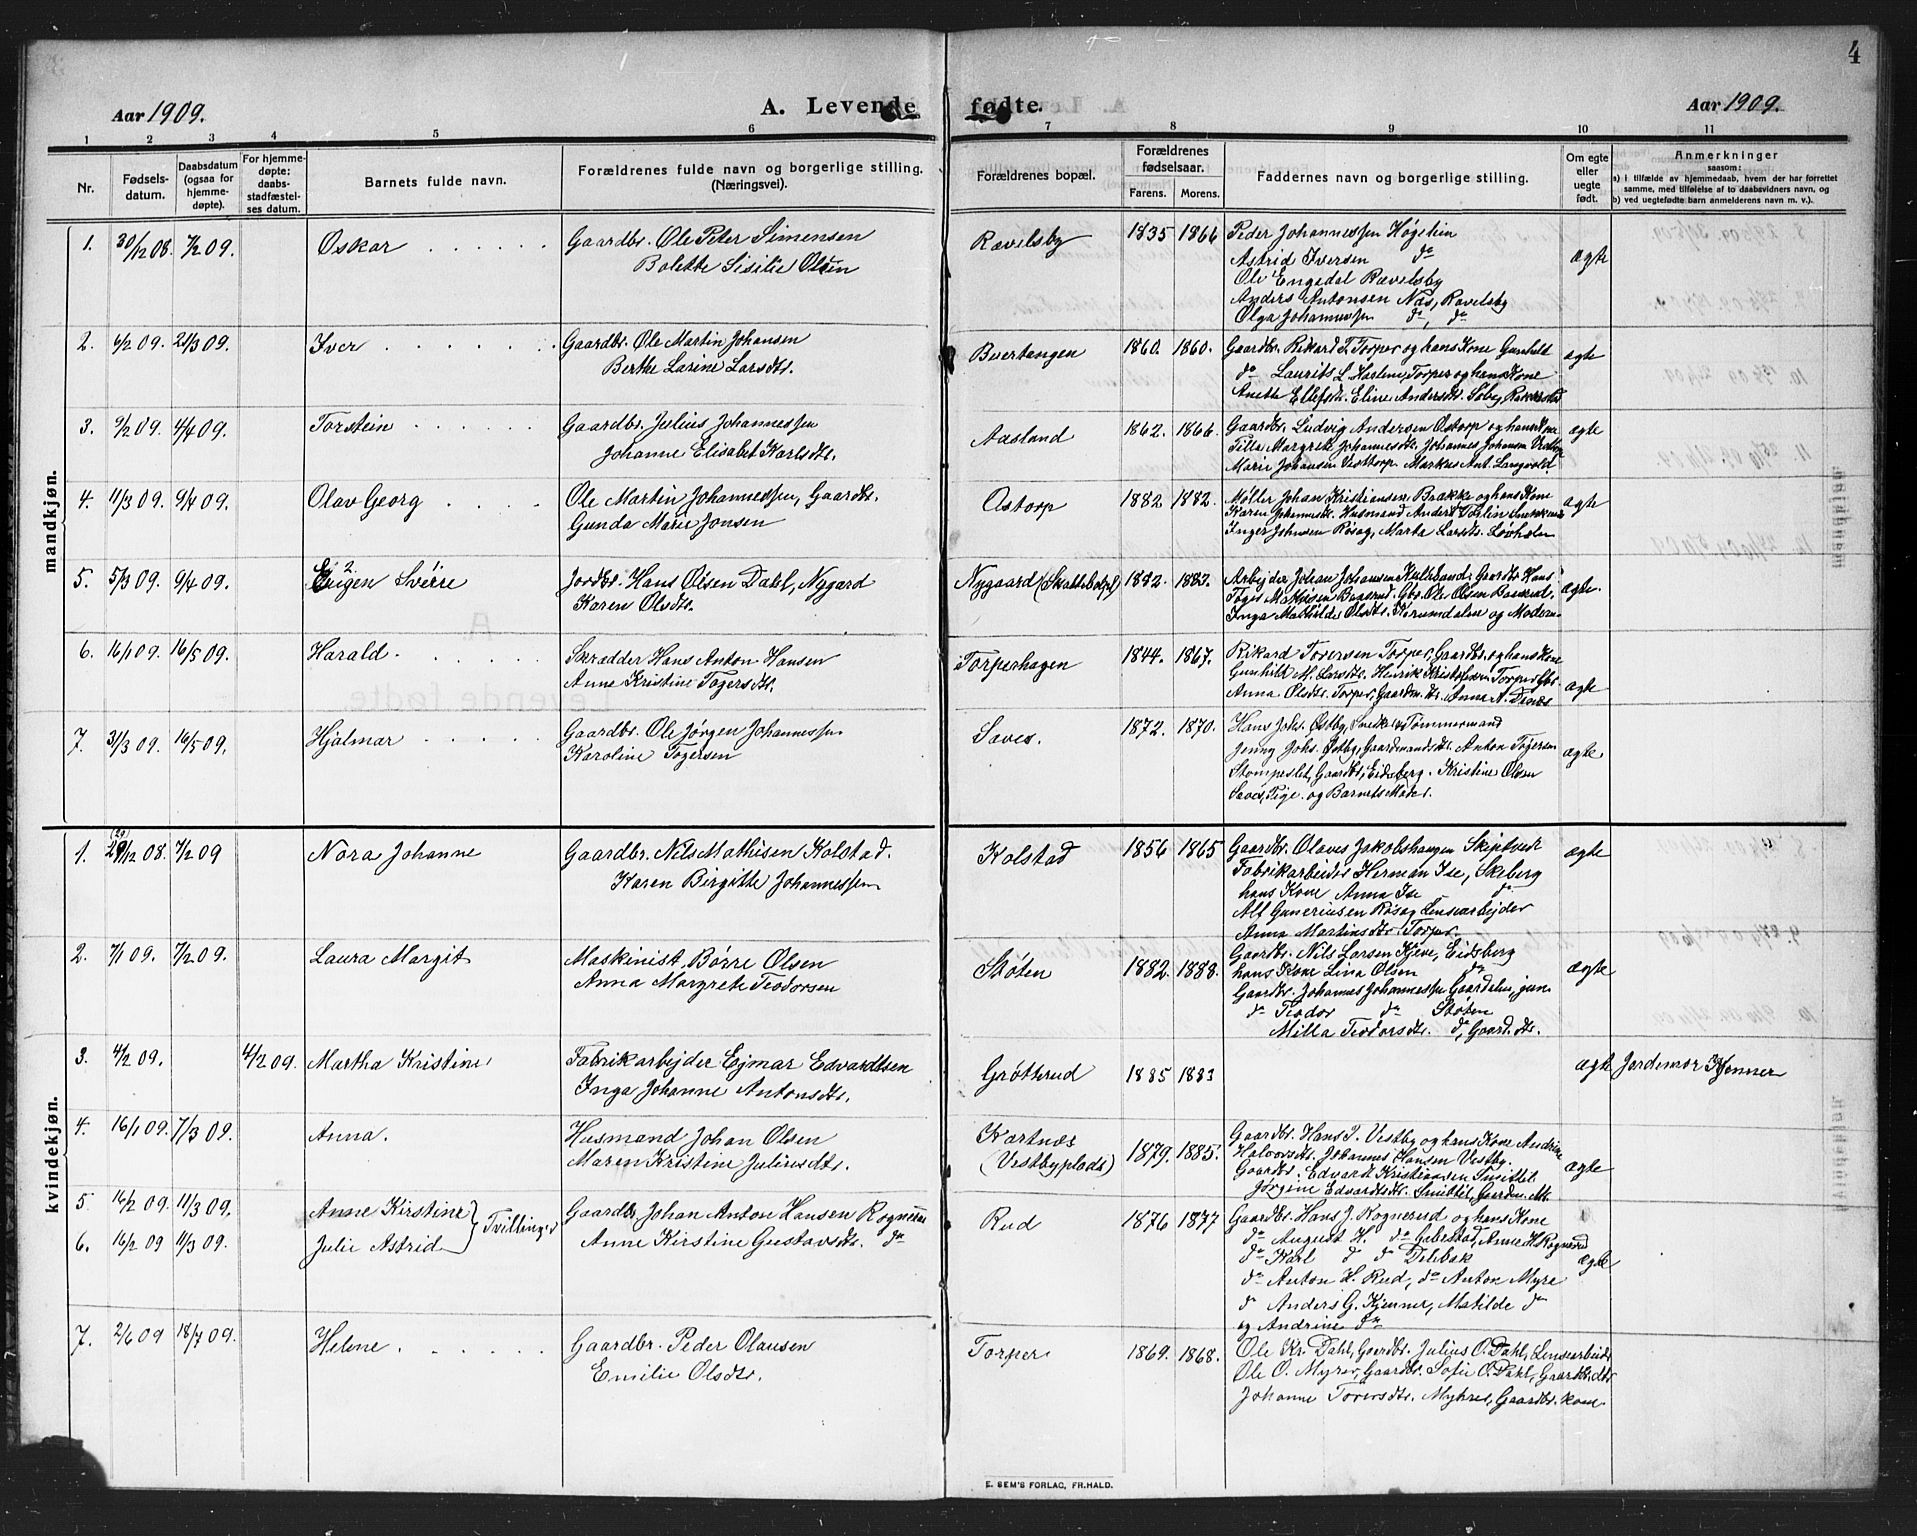 4
Aar 1909.
A. Levende fødte.
Aar 1909.
1 2 3 4 5 6 7 8 9 10 11
Nr.
Fødsels-
datum.
Daabsdatum
(ogsaa for
hjemme-
døpte).
For hjemme-
døpte:
daabs-
stadfæstel-
ses datum.
Barnets fulde navn.
Forældrenes fulde navn og borgerlige stilling.
(Næringsvei).
Forældrenes bopæl.
Forældrenes
fødselsaar.
Farens. Morens.
Faddernes navn og borgerlige stilling.
Om egte
eller
uegte
født.
Anmerkninger
saasom:
a) i tilfælde av hjemmedaab, hvem der har forrettet
samme, med tilføielse af to daabsvidners navn, og
b) ved uegtefødt barn anmelderens navn m. v.).
mandkjøn.
1. 30/12 08. 7/2 09. Oskar
Gaardbr. Ole Peter Simensen
Bolette Sisilie Olsen
Rævelsby 1835 1866
Peder Johannessen Høgelien
Astrid Iversen do
Ole Engedal Rævelsby
Anders Antonsen Næs, Rævelsby
Olga Johannessen do, do
ægte
2. 6/2 09. 21/3 09. Iver
Gaardbr. Ole Martin Johansen
Berthe Larine Larsdtr.
Bvertangen 1860. 1860.
Gaardbr. Rikard T. Torper og hans Kone Gunhild
do Laurits L. Haslem, Torper og hans Kone
Anette Ellefsdtr. Eline Andersdtr. Søby, Rakkestad
ægte
3. 9/2 09. 4/4 09. Torstein
Gaardbr. Julius Johannessen
Johanne Elisabet Karlsdtr.
Aasland 1862. 1866.
Gaardbr. Ludvig Andersen Ostorp og hans Kone
Tilla Margrete Johannesdtr. Johannes Johansen Vesttorp
Marie Johansen Vesttorp. Markus Ant. Langvold
ægte
4. 11/3 09. 9/4 09. Olav Georg
Ole Martin Johannessen, Gaardbr.
Gunda Marie Jonsen
Ostorp 1882 1882.
Møller Johan Kristiansen Bakke og hans Kone
Karen Johannesdtr. Husmand Anders
Inger Johnsen Røsæg, Marta Larsdtr. Løvholen
ægte
5. 5/3 09. 9/4 09. Eugen Sverre
Jordbr. Hans Olsen Dahl, Nygerd
Karen Olsdtr.
Nygaard (Skattebolpl) 1882. 1887.
Arbejder Johan Johansen Kulsland. Gaardbr. Hans
Toger Mathisen Baserud. Gbr. Ole Olsen Baserud.
Inga Mathilde Olsdtr. Korumdalen og Moderen
ægte.
6. 16/1 09. 16/5 09. Harald
Skrædder Hans Anton Hansen
Anne Kristine Togersdtr.
Torperhagen 1844. 1867.
Rikard Torersen Torper, Gaardbr. og hans Kone
Gunhild M. Larsdtr. Henrik Kristofersen Torper Gbr.
Anna Olsdtr. Torper, Gaardm. dtr. Anna A. Denæs
ægte
7. 31/3 09. 16/5 09. Hjalmar
Gaardbr. Ole Jørgen Johannessen
Karoline Togersen
Saves. 1872. 1870.
Hans Johs. Østby, Snekker, Tømmermand
Jenny Johs. Østby, Gaardmandsdtr. Anton Togersen
Stompeslet, Gaardbr, Eidsberg. Kristine Olsen
Saves, Pige. og Barnets Moder.
ægte
kvindekjøn.
1. 29/12 08. 7/2 09 Nora Johanne
Gaardbr. Nils Mathisen Kolstad.
Karen Birgitte Johannessen
Kolstad 1856 1865
Gaardbr. Olaves Jakobshaugen Skiptvedt
Fabrikarbeider Herman Ise, Skeberg
hans Kone Anna Ise do
Alf Gunerius en Røsæg Lensearbejder
Anna Martinsdtr Torper.
ægte
2. 7/1 09. 7/2 09. Laura Margit
Maskinist, Børre Olsen
Anna Margrete Teodorsen
Støten 1882. 1888.
Gaardbr. Nils Larsen Kjeve, Eidsberg
hans Kone Lina Olsen do
Gaardbr. Johannes Johannessen Gaardalen, jun
do Teodor do Støten
Milla Teodorsdtr. do, Gaard. dtr.
ægte
3. 4/2 09. 4/2 09. Martha Kristine
Fabrikarbejder Ejmar Edvardtsen
Inga Johanne Antonsdtr.
Grøtterud 1885 1883
ægte Jordemor Kjenner
4. 16/1 09. 7/3 09. Anna.
Husmand Johan Olsen
Maren Kristine Juliusdtr.
Kartnes
(Vestbyplads) 1879. 1885.
Gaardbr. Hans T. Vestby og hans Kone Andrine
Halvorsdtr. Johannes Hansen Vestby.
Gaardbr. Edvardt Kristiansen Smittil
Jørgine Edvardtsdtr. Smittil, Gaardm.
ægte
5 16/2 09. 11/3 09. Anne Kirstine
6. 16/2 09 11/3 09. Julie Astrid } Tvillinger
Gaardbr. Johan Anton Hansen Rognerud
Anne Kirstine Gustavsdtr. do
Rud 1876 1877
Gaardbr. Hans J. Rognerud og hans Kone
do August H. do Gabestad, Anne H. Rognerud
do Karl do do Delebæk
do Anton H. Rud, do Anton Myra
do Anders G. Kjenner, Matilde do
og Andrine do
ægte
7. 2/6 09 18/7 09. Helene
Gaardbr. Peder Olausen
Emilie Olsdtr.
Torper 1869. 1868.
Ole Kr. Dahl, Gaardbr. Julius O. Dahl, Lensearbeid
Ole O. Myrer, Gaardbr. Sofie O. Dahl, Gaardbr. dtr
Johanne Torersdtr. Myhrer, Gaardbr. kone.
E. SEM'S FORLAG, FR.HALD.